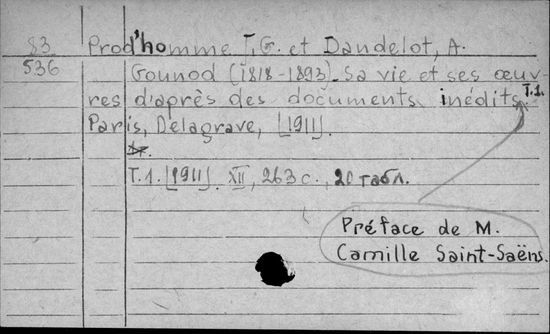 83 Prod'homme T.G. et Dandelot, A.
536 Gounod (1818-1893). Sa vie et ses œuv-
res d'après des documents inédits. T.1.
Paris, Delagrave, [1911].
T.1. [1911]. XII, 263 с., 20 табл.
Préface de M.
Camille Saint-Saëns.